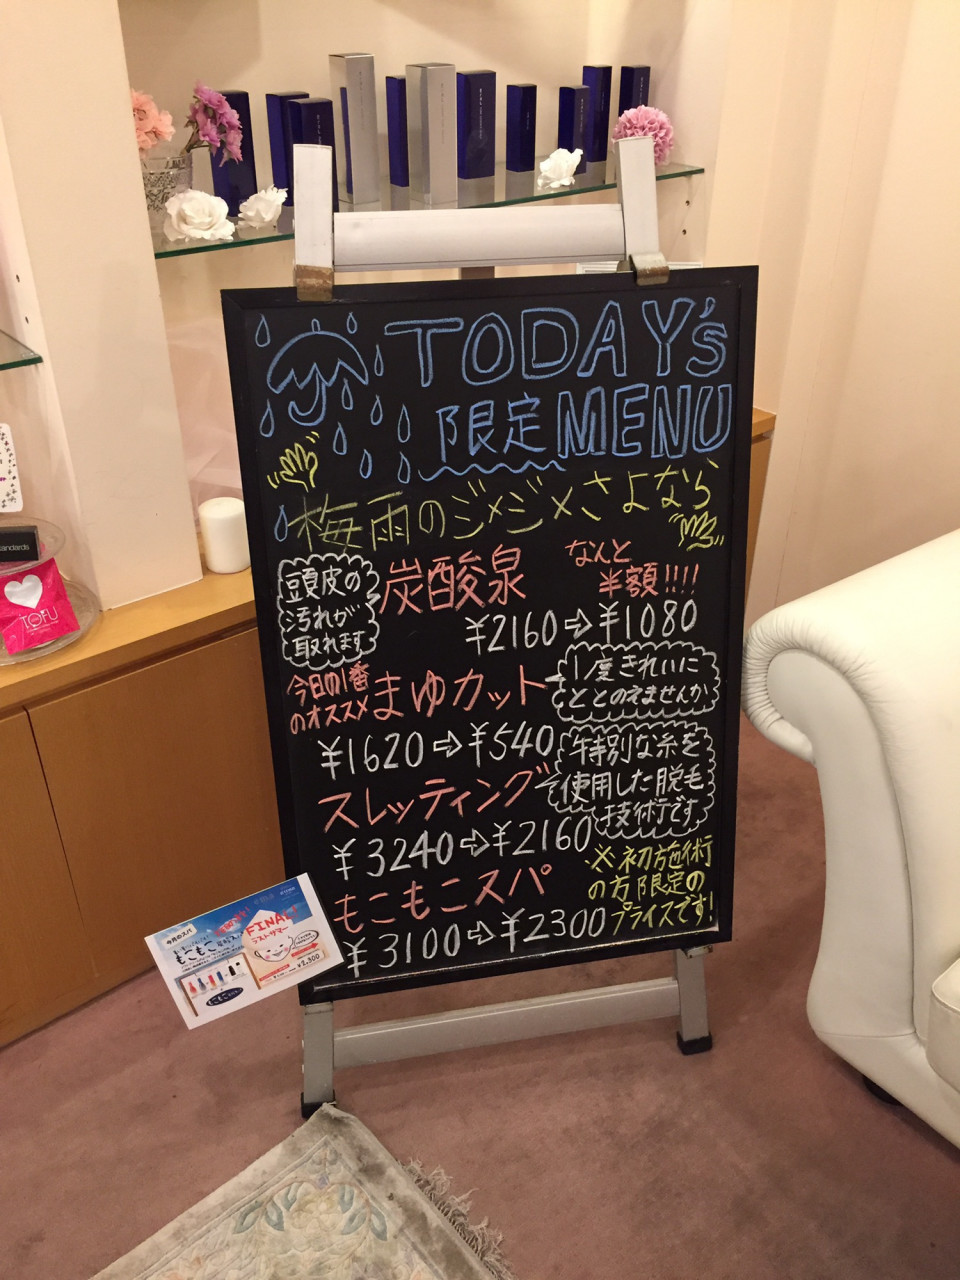 TODAY's
限定MENU
梅雨のジメジメさよなら
頭皮の
汚れが
取れます
炭酸泉
なんと
半額!!!!
¥2160⇨¥1080
今日の1番
のオススメ
まゆカット
1度きれいに
ととのえませんか
¥1620⇨¥540
スレッティング
特別な糸を
使用した脱毛
技術です。
¥3240⇨¥2160
もこもこスパ
¥3100⇨¥2300
※初施術
の方限定の
プライスです!
今月のスパ
もこもこ
FINAL
ラストサマー
¥2,300
もこもこ
TOFU